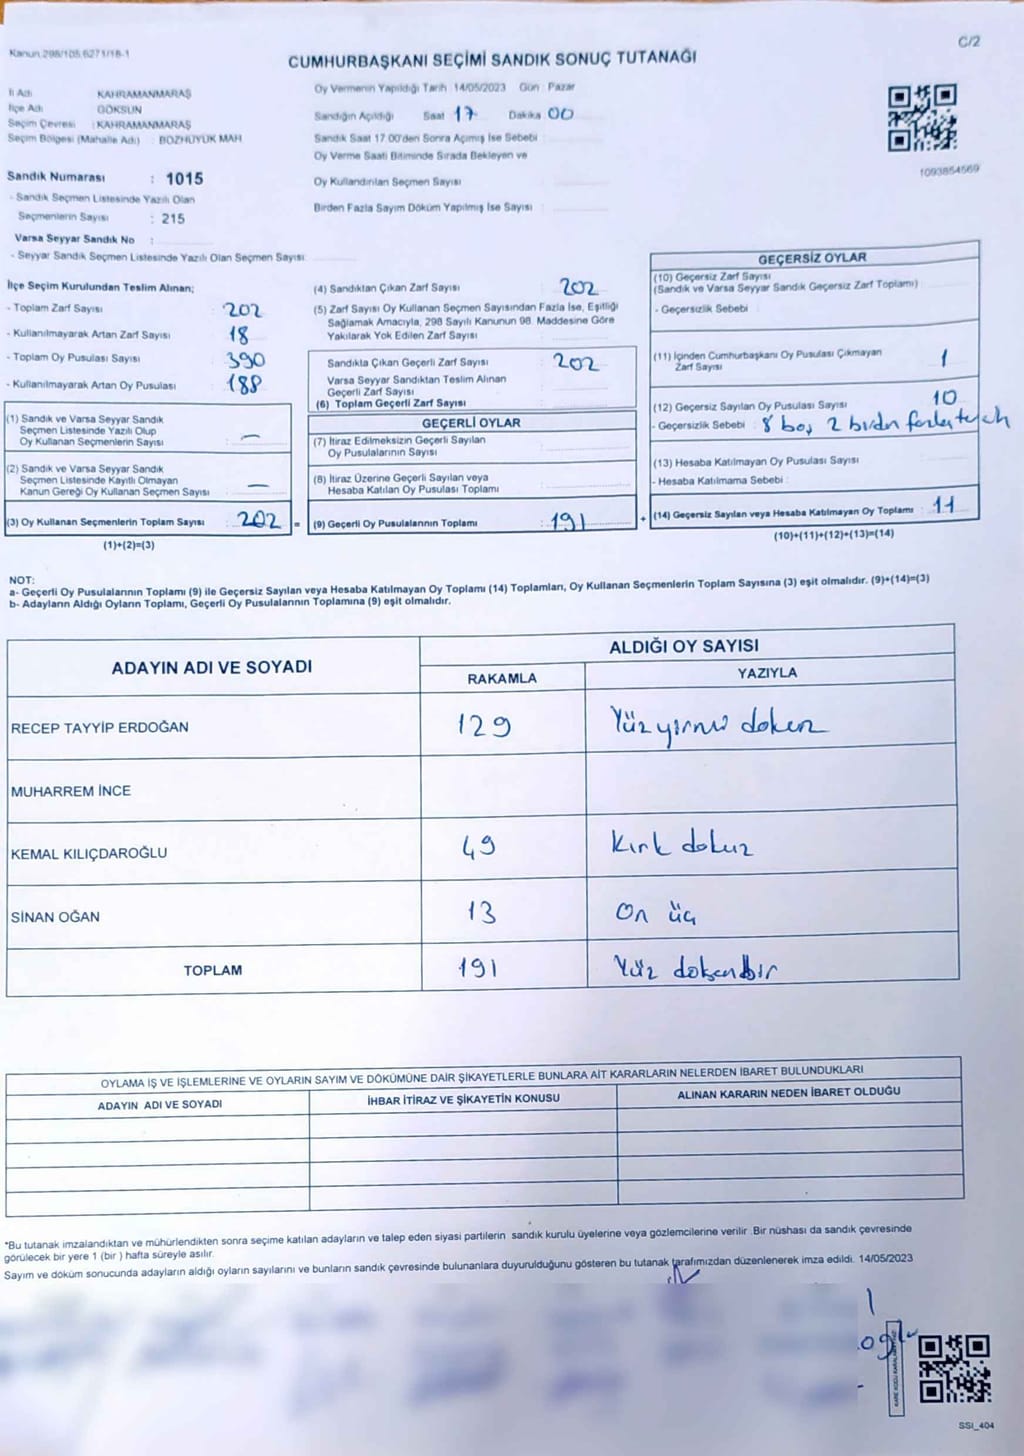 Kanun 298/105,6271/18-1
C/2
CUMHURBAŞKANI SEÇİMİ SANDIK SONUÇ TUTANAĞI
İl Adı KAHRAMANMARAŞ
İlçe Adı GÖKSUN
Seçim Çevresi : KAHRAMANMARAŞ
Seçim Bölgesi (Mahalle Adı) : BOZHÜYÜK MAH
Sandık Numarası : 1015
- Sandık Seçmen Listesinde Yazılı Olan
Seçmenlerin Sayısı : 215
Varsa Seyyar Sandık No :
- Seyyar Sandık Seçmen Listesinde Yazılı Olan Seçmen Sayısı:
Oy Vermenin Yapıldığı Tarih : 14/05/2023 Gün : Pazar
Sandığın Açıldığı Saat 17 Dakika 00
Sandık Saat 17:00'den Sonra Açılmış İse Sebebi :
Oy Verme Saati Bitiminde Sırada Bekleyen ve
Oy Kullandırılan Seçmen Sayısı :
Birden Fazla Sayım Döküm Yapılmış İse Sayısı :
1093854569
İlçe Seçim Kurulundan Teslim Alınan;
- Toplam Zarf Sayısı : 202
- Kullanılmayarak Artan Zarf Sayısı : 18
- Toplam Oy Pusulası Sayısı : 390
- Kullanılmayarak Artan Oy Pusulası : 188
(1) Sandık ve Varsa Seyyar Sandık
Seçmen Listesinde Yazılı Olup
Oy Kullanan Seçmenlerin Sayısı : —
(2) Sandık ve Varsa Seyyar Sandık
Seçmen Listesinde Kayıtlı Olmayan
Kanun Gereği Oy Kullanan Seçmen Sayısı : —
(3) Oy Kullanan Seçmenlerin Toplam Sayısı : 202 =
(1)+(2)=(3)
(4) Sandıktan Çıkan Zarf Sayısı : 202
(5) Zarf Sayısı Oy Kullanan Seçmen Sayısından Fazla İse, Eşitliği
Sağlamak Amacıyla, 298 Sayılı Kanunun 98. Maddesine Göre
Yakılarak Yok Edilen Zarf Sayısı :
Sandıkta Çıkan Geçerli Zarf Sayısı : 202
Varsa Seyyar Sandıktan Teslim Alınan
Geçerli Zarf Sayısı :
(6) Toplam Geçerli Zarf Sayısı :
GEÇERLİ OYLAR
(7) İtiraz Edilmeksizin Geçerli Sayılan
Oy Pusulalarının Sayısı :
(8) İtiraz Üzerine Geçerli Sayılan veya
Hesaba Katılan Oy Pusulası Toplamı :
(9) Geçerli Oy Pusulalarının Toplamı : 191 +
GEÇERSİZ OYLAR
(10) Geçersiz Zarf Sayısı
(Sandık ve Varsa Seyyar Sandık Geçersiz Zarf Toplamı) :
- Geçersizlik Sebebi :
(11) İçinden Cumhurbaşkanı Oy Pusulası Çıkmayan
Zarf Sayısı : 1
(12) Geçersiz Sayılan Oy Pusulası Sayısı : 10
- Geçersizlik Sebebi : 8 boş 2 birden fazla
(13) Hesaba Katılmayan Oy Pusulası Sayısı :
- Hesaba Katılmama Sebebi :
(14) Geçersiz Sayılan veya Hesaba Katılmayan Oy Toplamı : 11
(10)+(11)+(12)+(13)=(14)
NOT:
a- Geçerli Oy Pusulalarının Toplamı (9) ile Geçersiz Sayılan veya Hesaba Katılmayan Oy Toplamı (14) Toplamları, Oy Kullanan Seçmenlerin Toplam Sayısına (3) eşit olmalıdır. (9)+(14)=(3)
b- Adayların Aldığı Oyların Toplamı, Geçerli Oy Pusulalarının Toplamına (9) eşit olmalıdır.
ADAYIN ADI VE SOYADI
ALDIĞI OY SAYISI
RAKAMLA YAZIYLA
RECEP TAYYİP ERDOĞAN 129 Yüz yirmi dokuz
MUHARREM İNCE
KEMAL KILIÇDAROĞLU 49 Kırk dokuz
SİNAN OĞAN 13 On üç
TOPLAM 191 Yüz doksanbir
OYLAMA İŞ VE İŞLEMLERİNE VE OYLARIN SAYIM VE DÖKÜMÜNE DAİR ŞİKAYETLERLE BUNLARA AİT KARARLARIN NELERDEN İBARET BULUNDUKLARI
ADAYIN ADI VE SOYADI İHBAR İTİRAZ VE ŞİKAYETİN KONUSU ALINAN KARARIN NEDEN İBARET OLDUĞU
*Bu tutanak imzalandıktan ve mühürlendikten sonra seçime katılan adayların ve talep eden siyasi partilerin sandık kurulu üyelerine veya gözlemcilerine verilir. Bir nüshası da sandık çevresinde
görülecek bir yere 1 (bir ) hafta süreyle asılır.
Sayım ve döküm sonucunda adayların aldığı oyların sayılarını ve bunların sandık çevresinde bulunanlara duyurulduğunu gösteren bu tutanak tarafımızdan düzenlenerek imza edildi. 14/05/2023
SSI_404